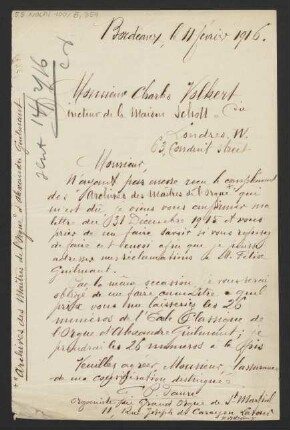 Bordeaux, le 11 février 1916.
Monsieur Charles Volkert
Directeur de la Maison Schott & Cie
Londres, W.
63, Conduit Street
Monsieur,
N'ayant pas encore reçu le complément
des "Archives des Maîtres de l'Orgue" qui
m'est dû, je viens vous confirmer ma
lettre du 31 Décembre 1915 et vous
prier de me faire savoir si vous
faire cet envoi afin que je puisse
adresser mes réclamations à M. Félix
Guilmant.
Par la même occasion, je vous serai
obligé de me faire connaître à quel
prix vous me laisseriez les 25
numéros de l'École Classique de
l'Orgue d'Alexandre Guilmant; je
prendrai les 25 numéros à la fois
Veuillez agréer, Monsieur, l'assurance
de ma considération distinguée.
organiste du Grand Orgue de St Martial
11, Rue Joseph de Carayon Latour
"Archives des Maîtres de l'Orgue" Alexandre Guilmant